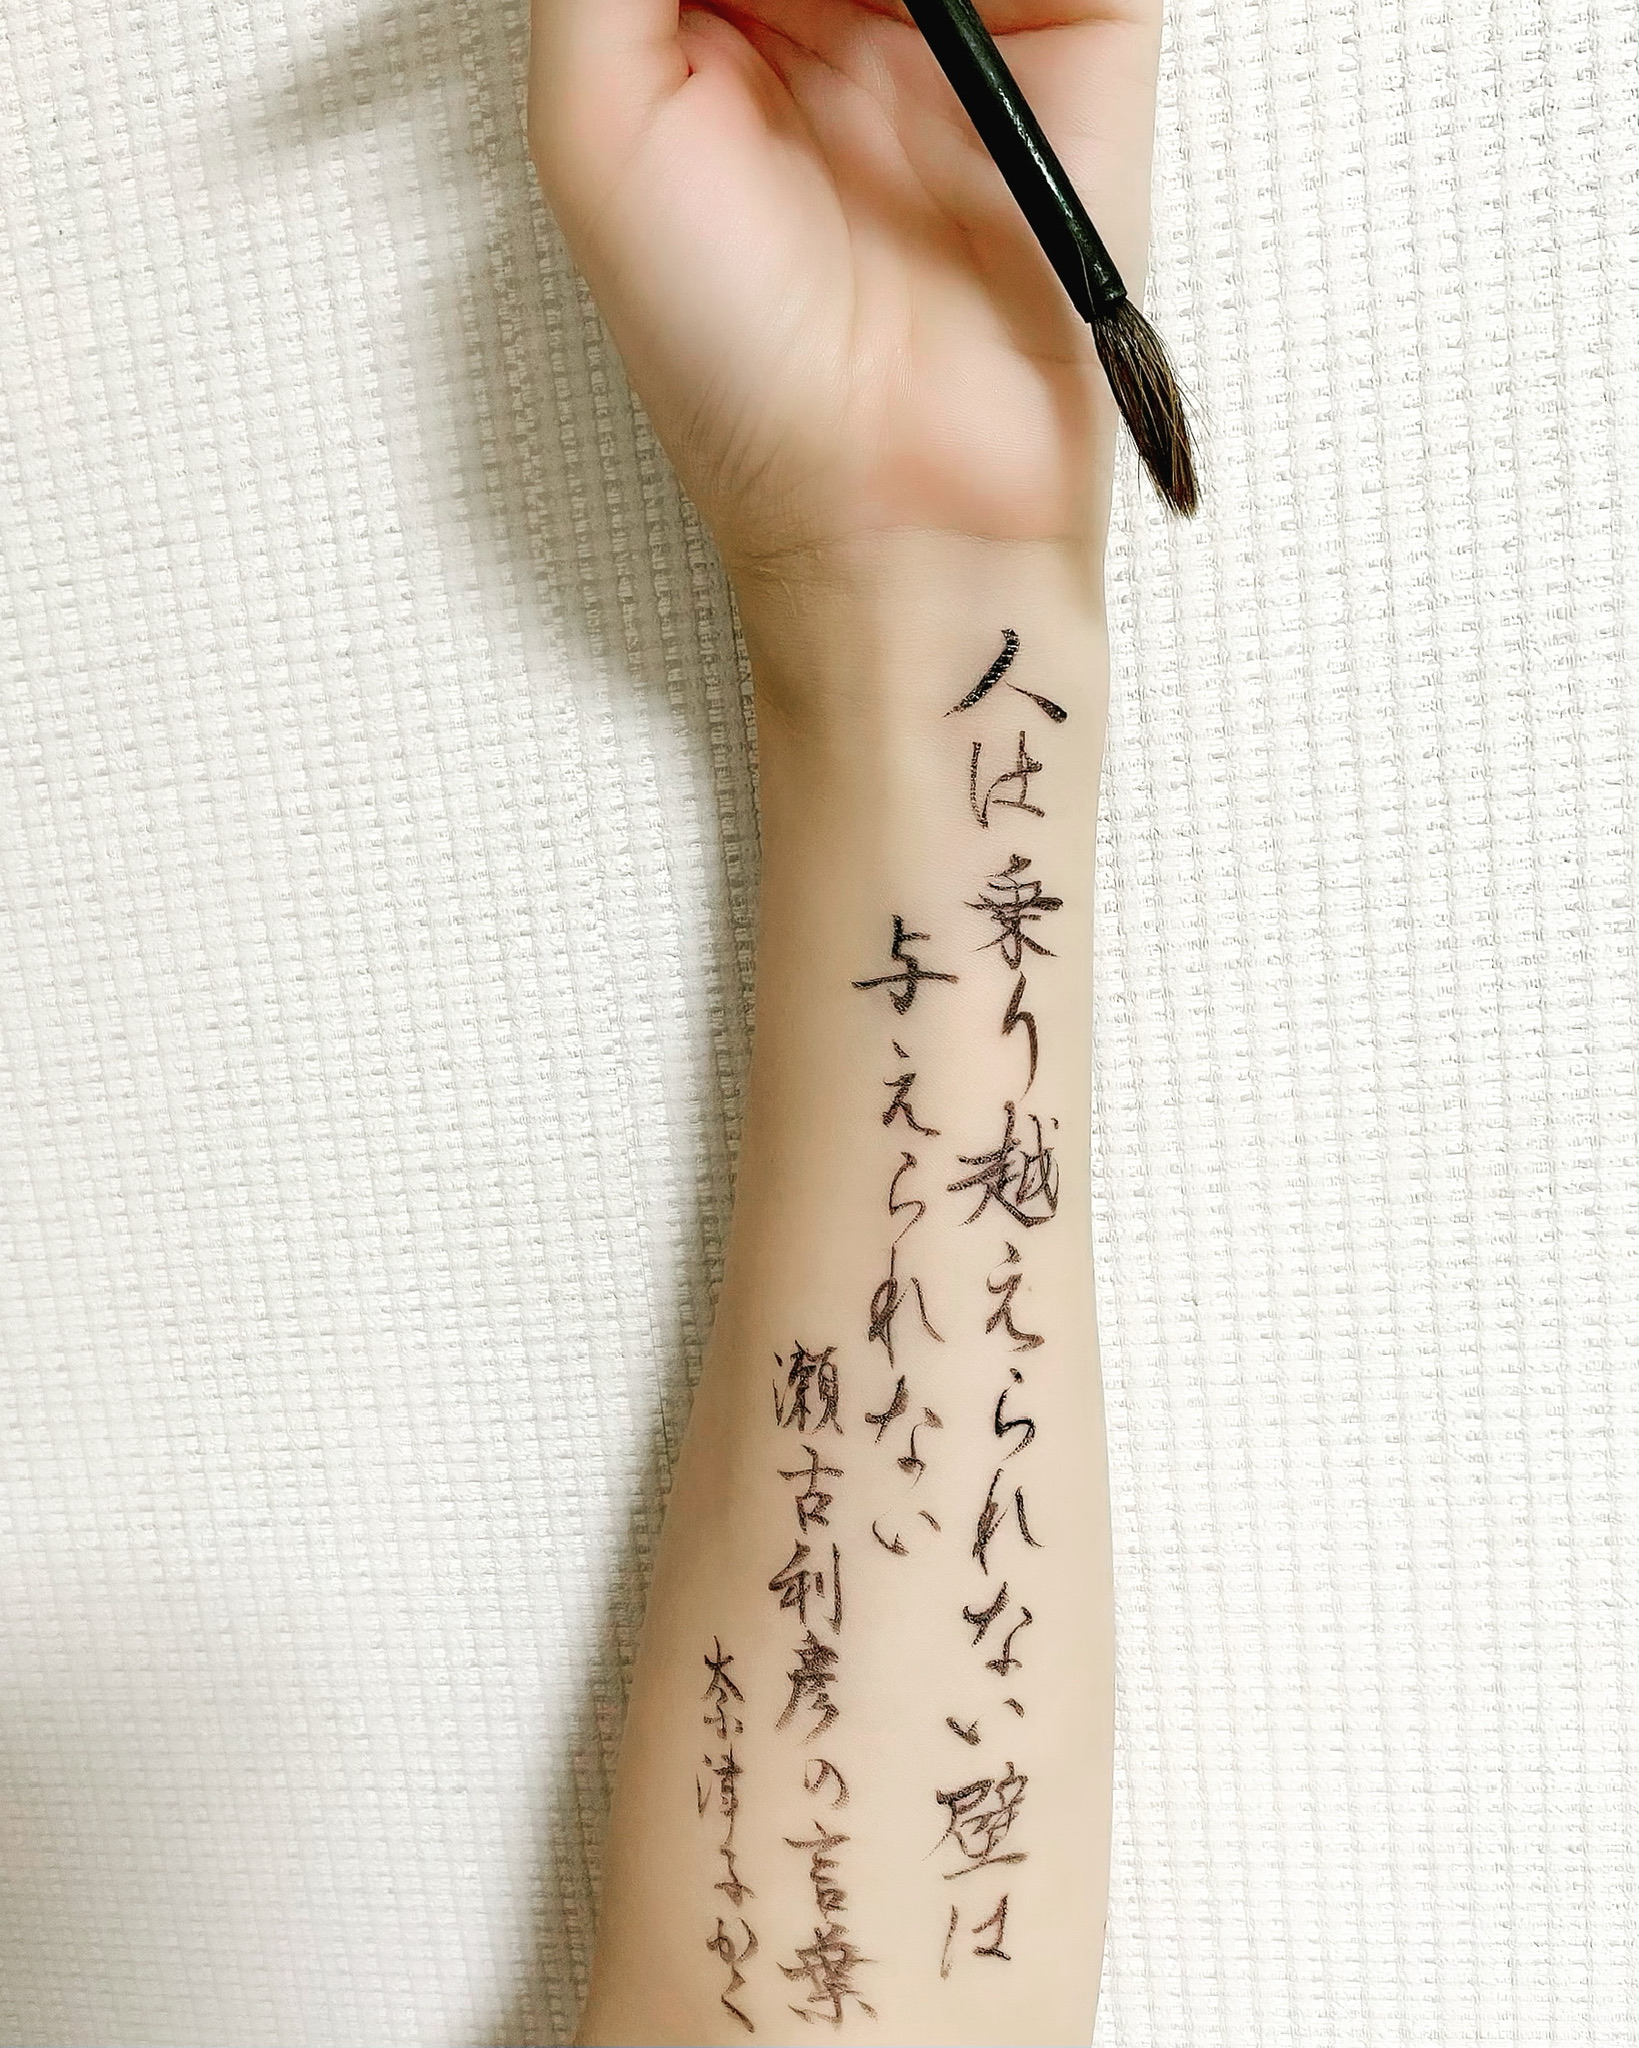 人は乗り越えられない壁は
与えられない
瀬古利彦の言葉
奈津子かく